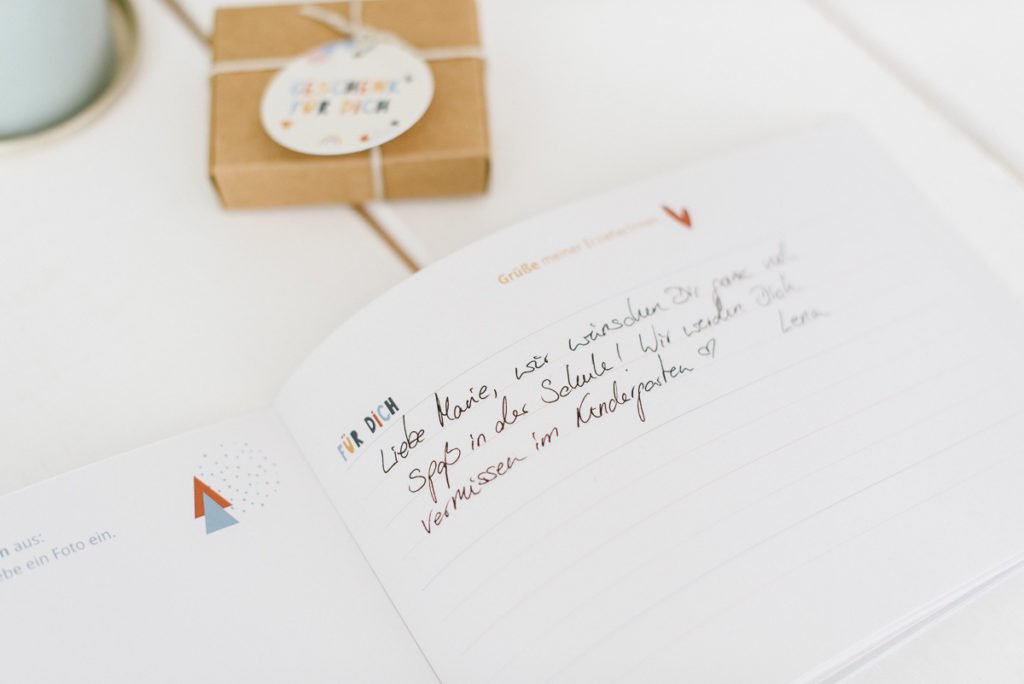 GESCHENK
FÜR DICH
Grüße meiner Erzieherinnen
FÜR DICH
Liebe Marie, wir wünschen Dir ganz viel
Spaß in der Schule! Wir werden Dich
vermissen im Kindergarten ♡ Lena
aus:
ebe ein Foto ein.